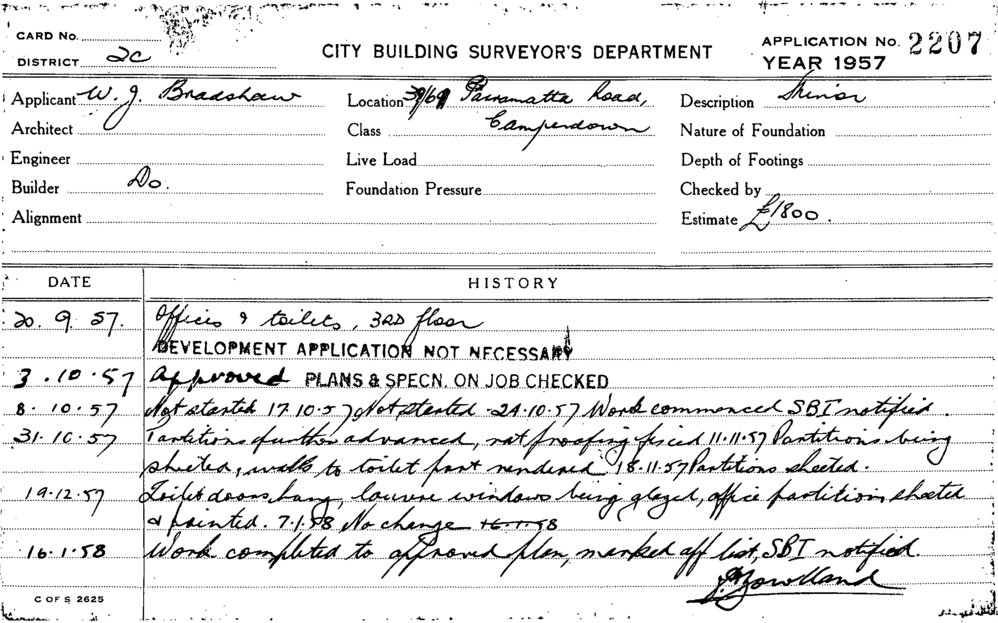 CARD No.
DISTRICT 2C
CITY BUILDING SURVEYOR'S DEPARTMENT
APPLICATION No. 2207
YEAR 1957
Applicant W. J. Bradshaw
Location Parramatta Road,
Description Minor
Architect
Class Camperdown
Nature of Foundation
Engineer
Live Load
Depth of Footings
Builder Do.
Foundation Pressure
Checked by
Alignment
Estimate £1800.
DATE HISTORY
20.9.57. Offices & toilets, 3RD floor
DEVELOPMENT APPLICATION NOT NECESSARY
3.10.57 Approved PLANS & SPECN. ON JOB CHECKED
8.10.57 Not started 17.10.57 Not started 24.10.57 Work commenced SBI notified.
31.10.57 Partitions further advanced, ratproofing fixed 11.11.57 Partitions being
sheeted, walls to toilet part rendered 18.11.57 Partitions sheeted.
19.12.57 Toilet doors hung, louvre windows being glazed, office partitions sheeted
& painted. 7.1.58 No change 16.1.58
16.1.58 Work completed to approved plan, marked off list, SBI notified.
C OF S 2625